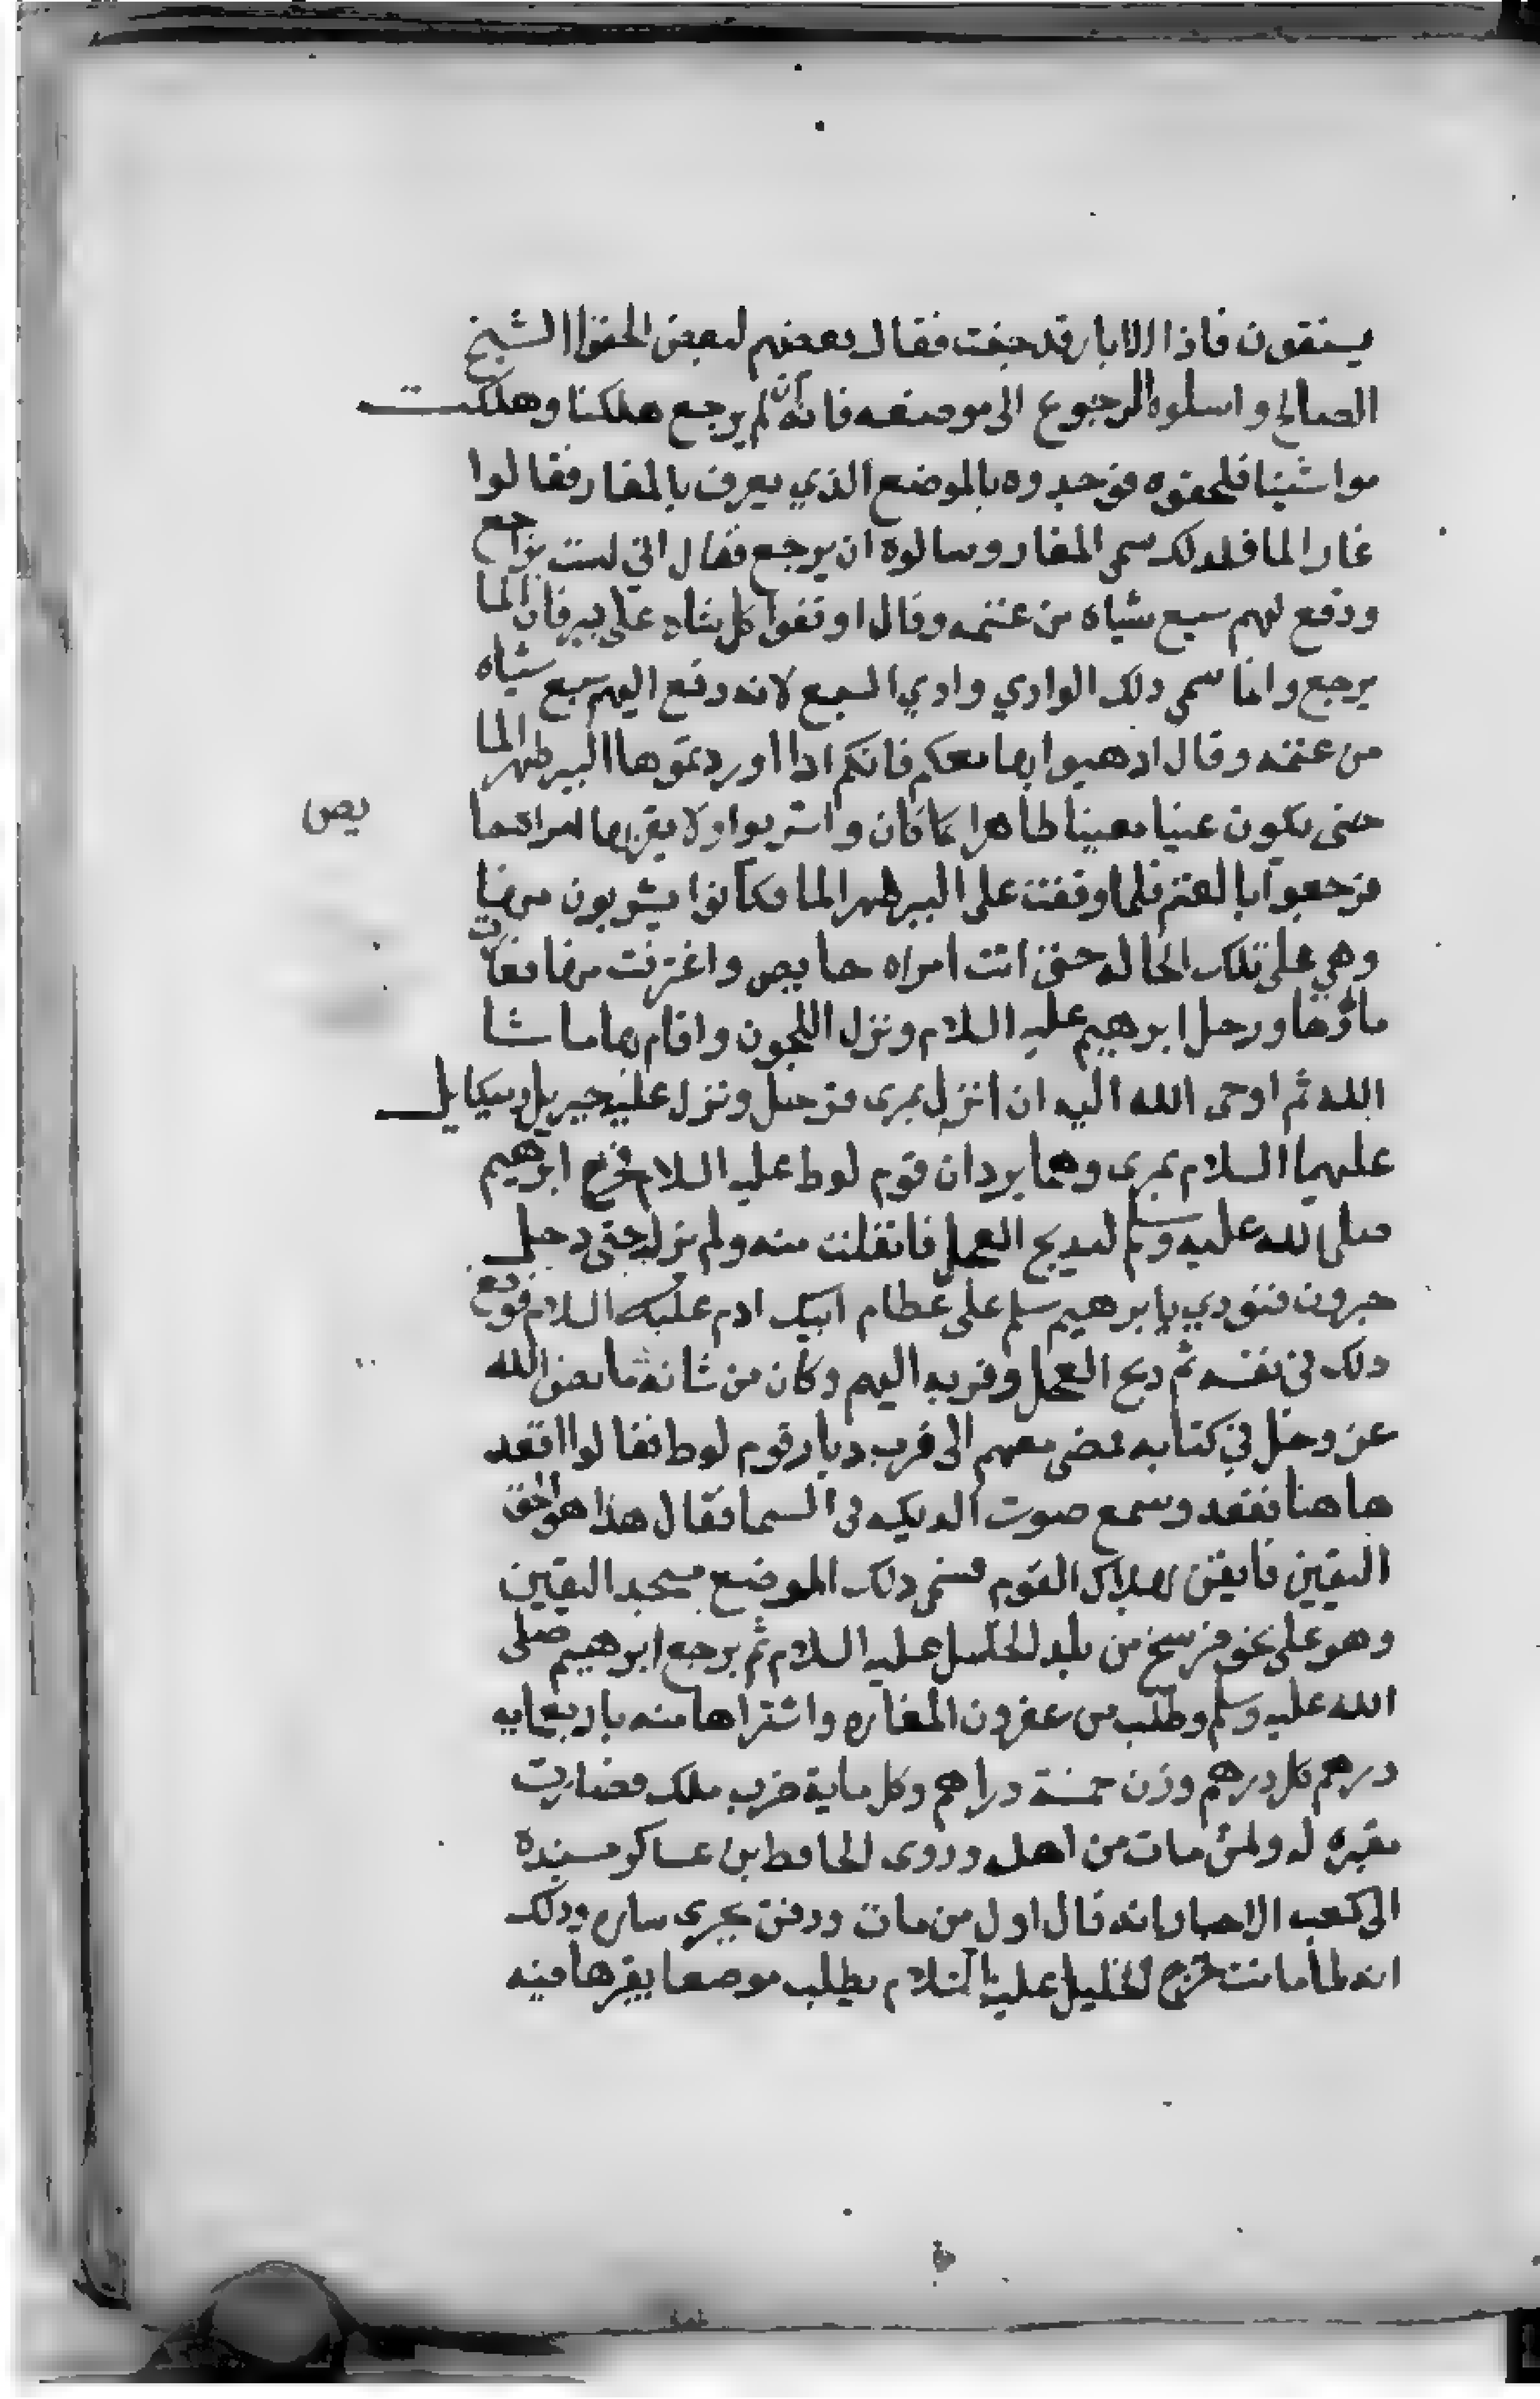 يستقون فاذا الابار قد جفت فقال بعضهم لبعض الحقوا الشيخ
الصالح واسلوه الرجوع الى موضعه فانه ان لم يرجع هلكنا وهلكت
مواشينا فلحقوه فوجدوه بالموضع الذي يعرف بالمغار فقالوا
غار الما فلدلك سمى المغار وسالوه ان يرجع فقال اني لست براجع
ودفع لهم سبع شياه من غنمه وقال اوقفوا كل شاه على بير فان الما
يرجع وانما سمى دلك الوادي وادي السبع لانه دفع اليهم سبع شياه
من غنمه وقال ادهبوا بها معكم فانكم ادا اوردتموها البير ظهر الما
حتى يكون عينا معينا طاهرا كما كان واشربوا ولا يقربها امراة حا
يض
فرجعوا بالغنم فلما وقفت على البير ظهر الما فكانوا يشربون منها
وهي على تلك الحاله حتى اتت امراه حايض واغترفت منها فغارت
ماؤها ورحل ابرهيم عليه السلام ونزل اللجون واقام بها ما شا
الله ثم اوحى الله اليه ان انزل بمرى فرحل ونزل عليه جبريل وميكايل
عليهما السلام بمرى وهما يردان قوم لوط عليه السلام فخرج ابرهيم
صلى الله عليه وسلم ليدبح العجل فانفلت منه ولم يزل حتى دخل
حبرون فنودي يابرهيم سلم على عظام ابيك ادم عليه السلام فوقع
دلك في نفسه ثم دبح العجل وقربه اليهم وكان من شانه ما نص الله
عز وجل في كتابه فمضى معهم الى قرب ديار قوم لوط فقالوا اقعد
هاهنا فقعد وسمع صوت الديكه في السما فقال هذا هو الحق
اليقين فايقن بهلاك القوم فسمى دلك الموضع مسجد اليقين
وهو على نحو فرسخ من بلد الخليل عليه السلام ثم رجع ابرهيم صلى
الله عليه وسلم وطلب من عفرون المغاره واشتراها منه باربعمايه
درهم كل درهم وزن خمسة دراهم وكل ماية ضرب ملك فصارت
مقبره له ولمن مات من اهله وروى الحافظ بن عساكر بسنده
الى كعب الاحبار انه قال اول من مات ودفن بحبرى ساره ودلك
انه لما ماتت خرج الخليل عليه السلام يطلب موضعا يقبرها فيه